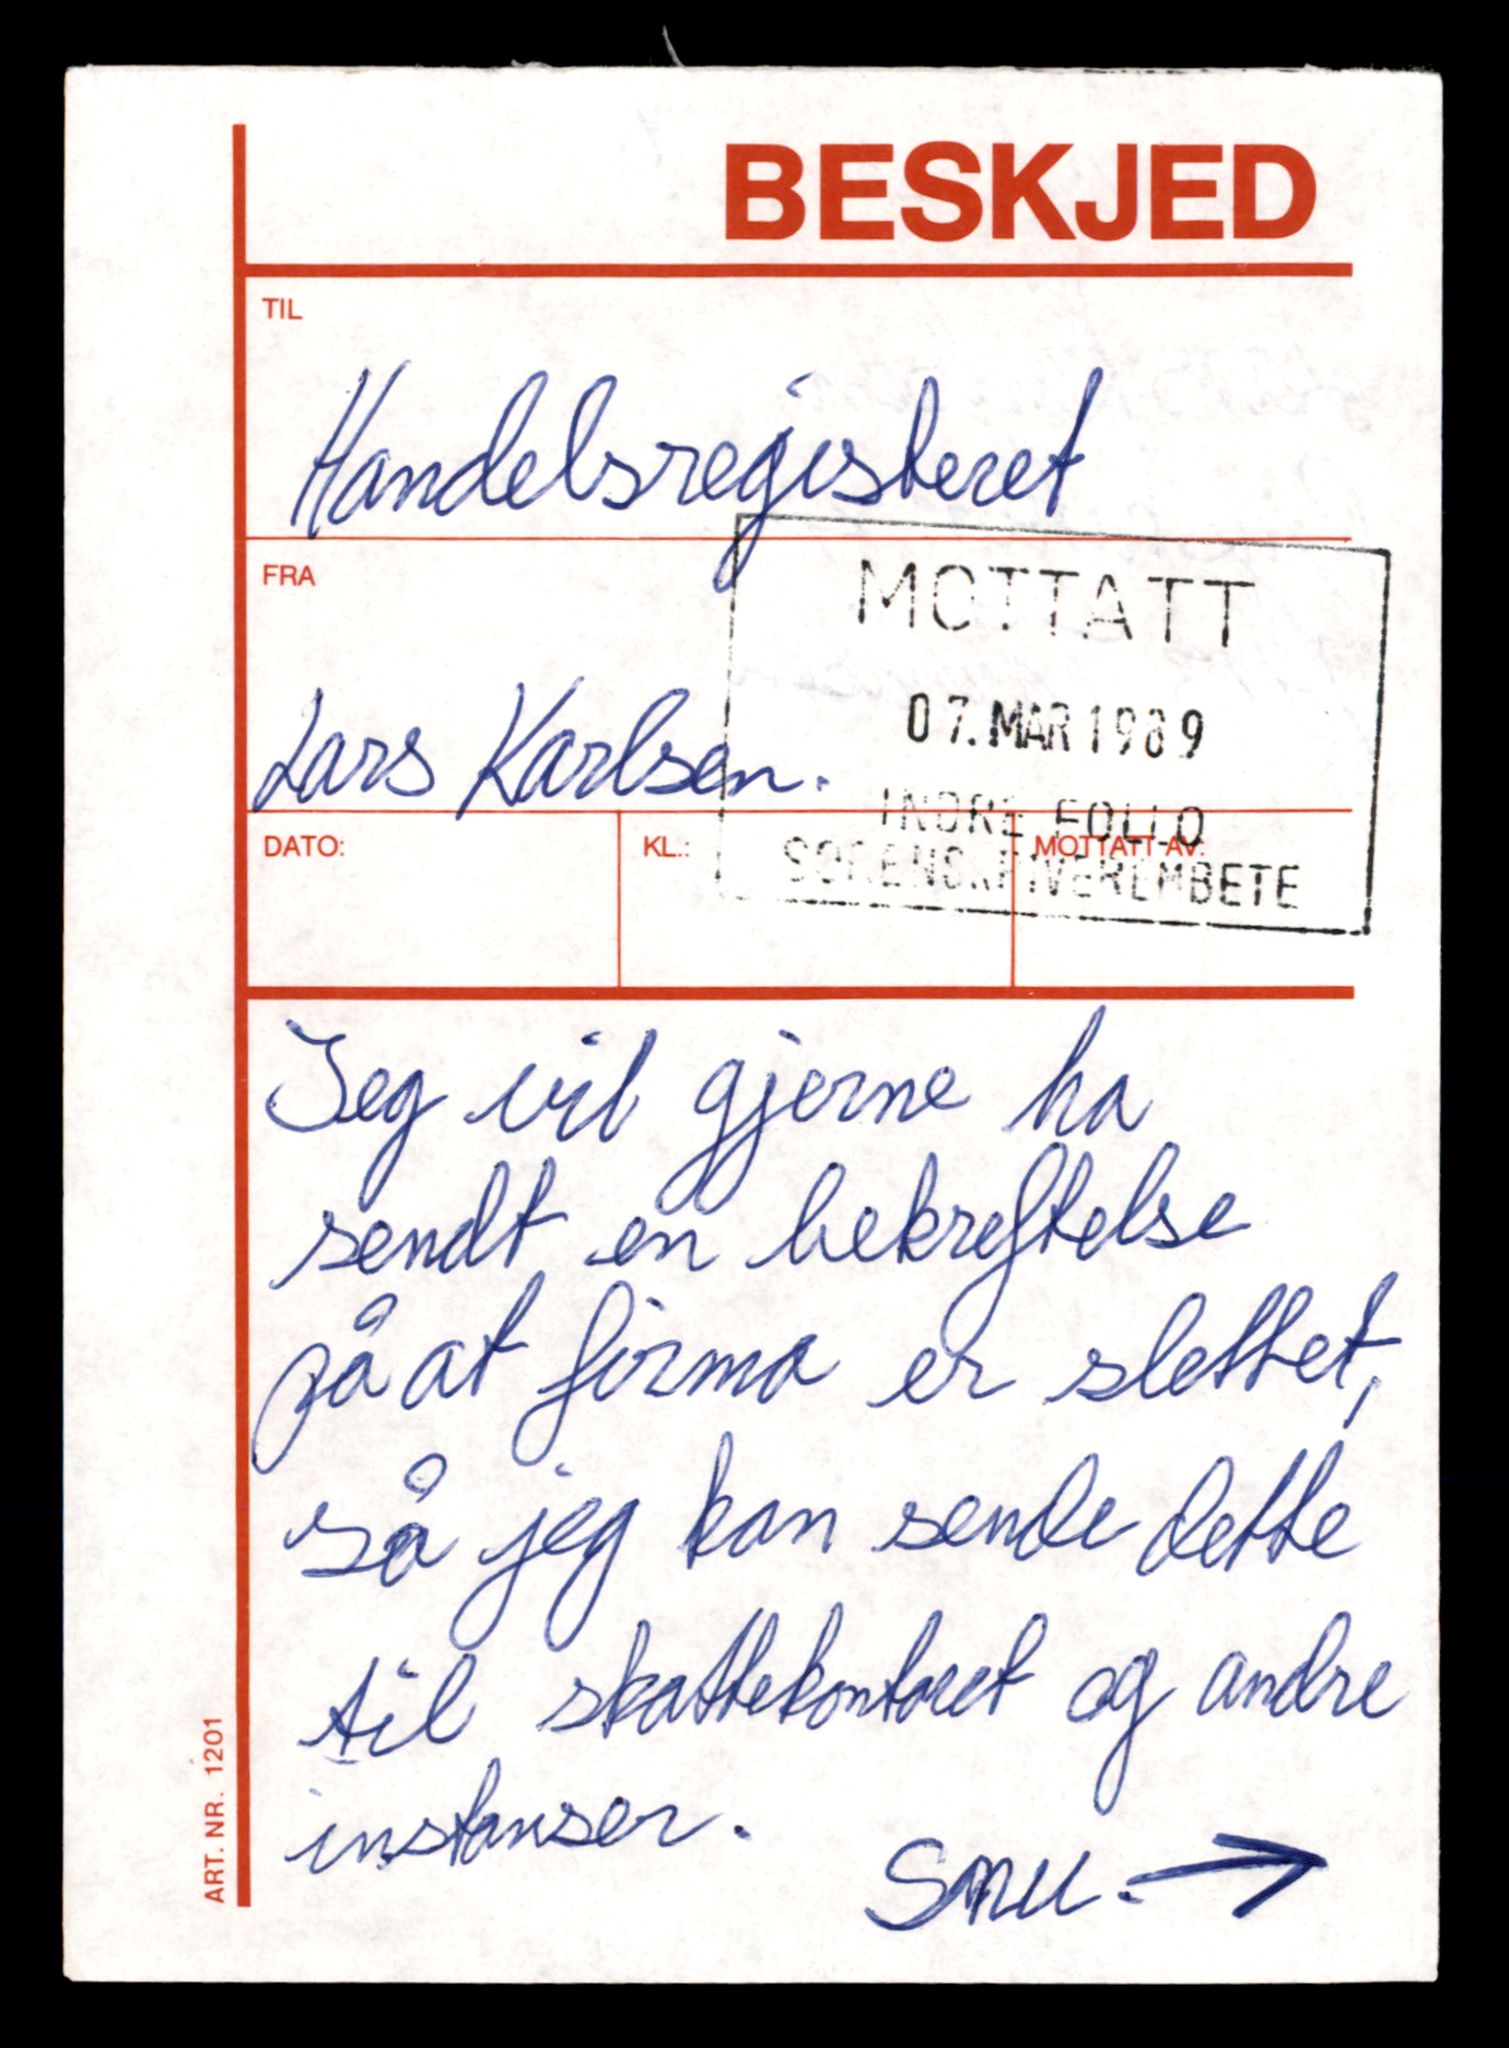 BESKJED
TIL
Handelsregisteret
FRA
MOTTATT
07. MAR 1989
Lars Karlsen.
INDRE FOLLO
DATO:
KL.:
MOTTATT AV:
SORENSKRIVEREMBETE
Jeg vil gjerne ha
sendt en bekreftelse
på at firma er slettet,
så jeg kan sende dette
til skattekontoret og andre
instanser.
Snu. →
ART. NR. 1201